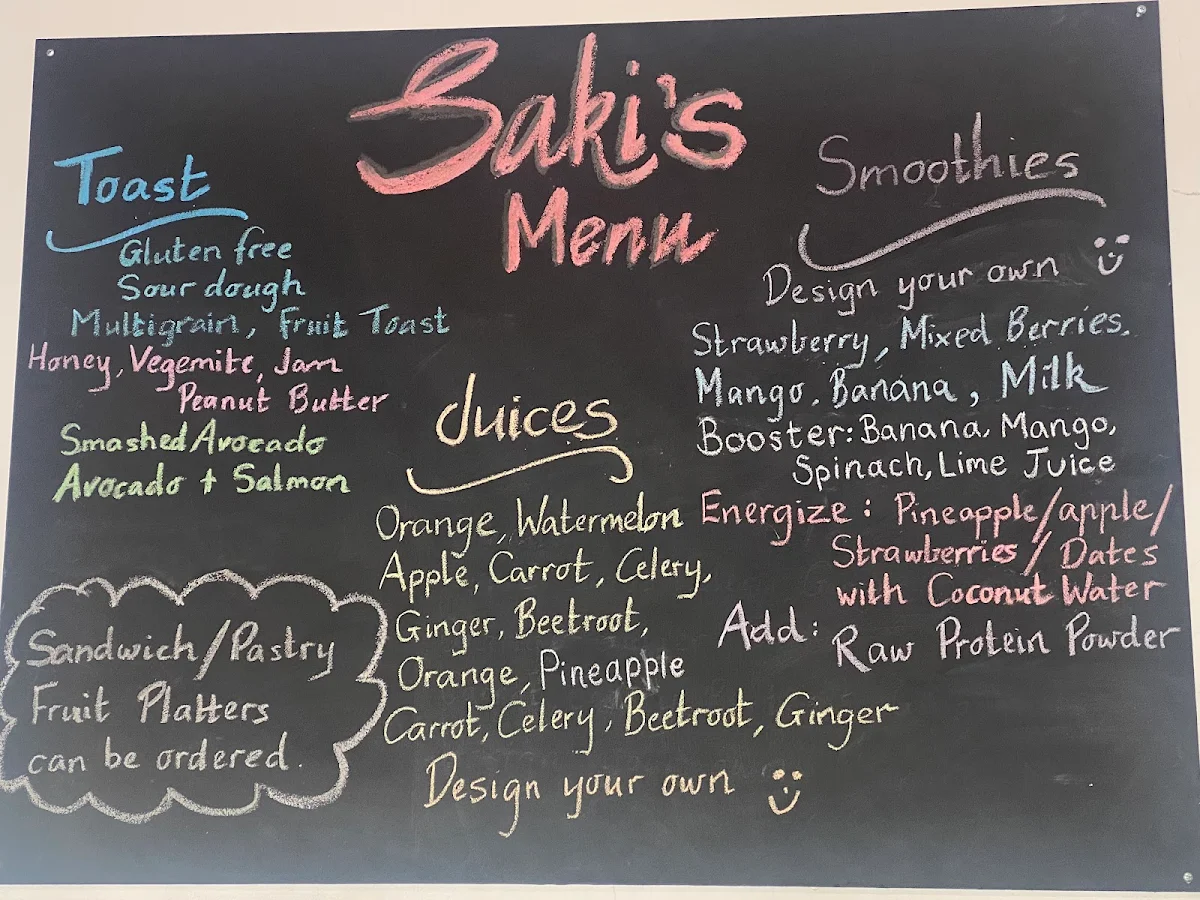 Saki's
Menu
Toast
Gluten free
Sour dough
Multigrain, Fruit Toast
Honey, Vegemite, Jam
Peanut Butter
Smashed Avocado
Avocado + Salmon
Sandwich/Pastry
Fruit Platters
can be ordered.
Juices
Orange, Watermelon
Apple, Carrot, Celery,
Ginger, Beetroot,
Orange, Pineapple
Carrot, Celery, Beetroot, Ginger
Design your own
Smoothies
Design your own
Strawberry, Mixed Berries.
Mango, Banana, Milk
Booster: Banana, Mango,
Spinach, Lime Juice
Energize: Pineapple/apple/
Strawberries/Dates
with Coconut Water
Add: Raw Protein Powder